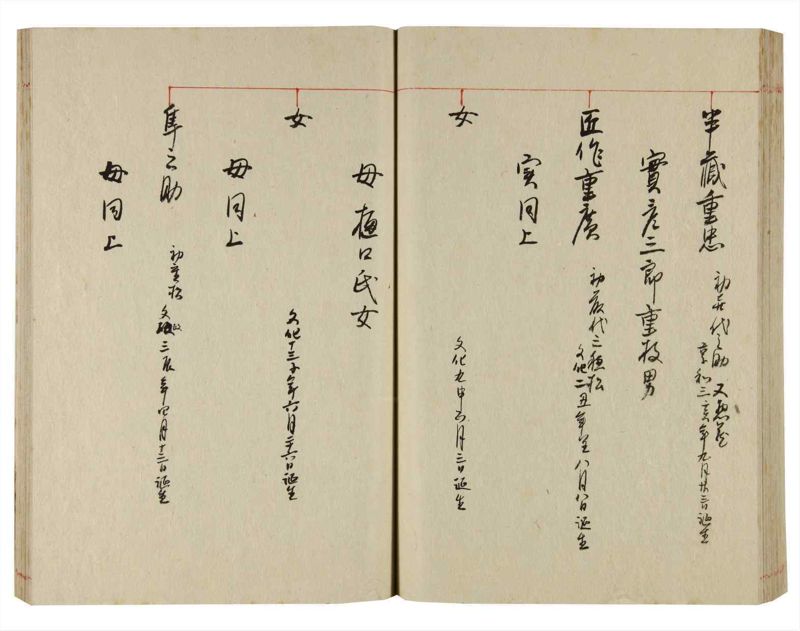 半藏重忠
初喜代之助 又惣蔵
享和三亥年九月廿三日誕生
實彦三郎重技男
匠作重廣
初 代 松
文化二丑年 八月八日誕生
实同上
女
文化九申 五月三日誕生
母樋口氏女
女
文化十三子年六月廿六日誕生
母同上
隼之助
初 松
文政三辰年四月十二日誕生
母同上